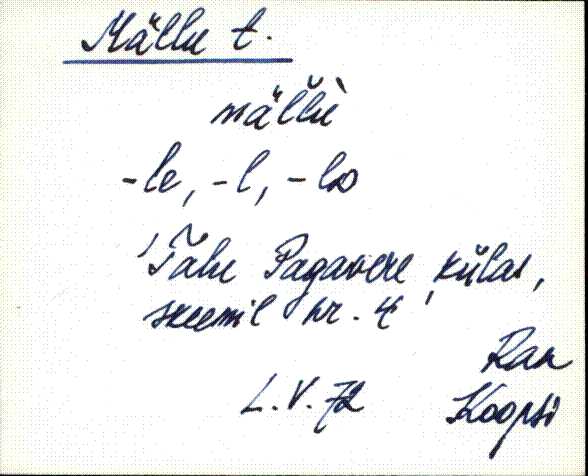 Mällu t.
mäl̆l̆ù
-le, -l, -lo
'Talu Pagavere külas,
skeemil nr. 4'
Ran
L.V. 72 Koopsi